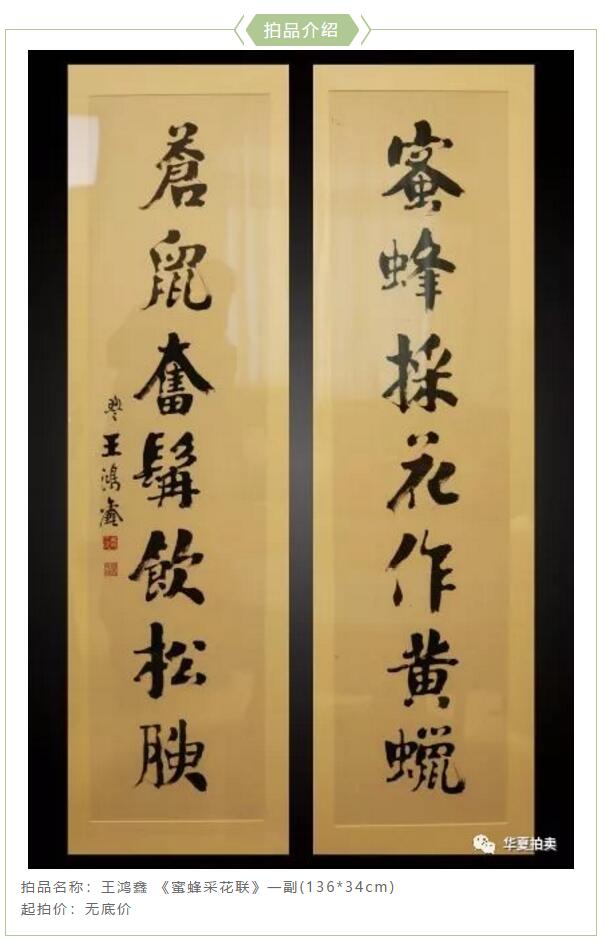 拍品介绍
蜜蜂採花作黄蠟
蒼鼠奮髯飲松腴
王鴻鑫
华夏拍卖
拍品名称：王鸿鑫 《蜜蜂采花联》一副(136*34cm)
起拍价：无底价